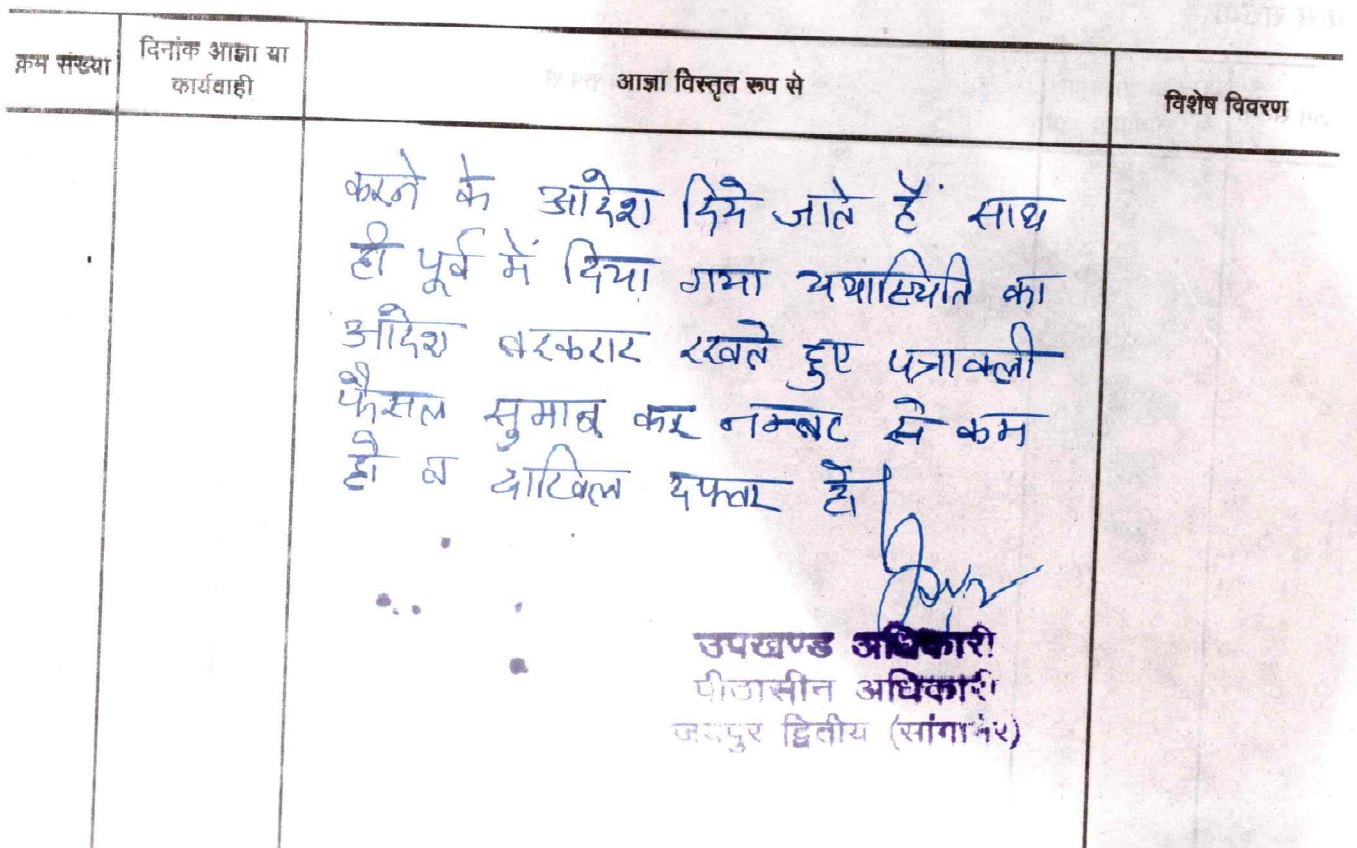 क्रम संख्या
दिनांक आज्ञा या
कार्यवाही
आज्ञा विस्तृत रूप से
विशेष विवरण
करने के आदेश दिये जाते हैं साथ
ही पूर्व में दिया गया यथास्थिति का
आदेश बरकरार रखते हुए पत्रावली
फैसल सुमार कर नम्बर से कम
हो व दाखिल दफ्तर हो
उपखण्ड अधिकारी
पीठासीन अधिकारी
जयपुर द्वितीय (सांगानेर)